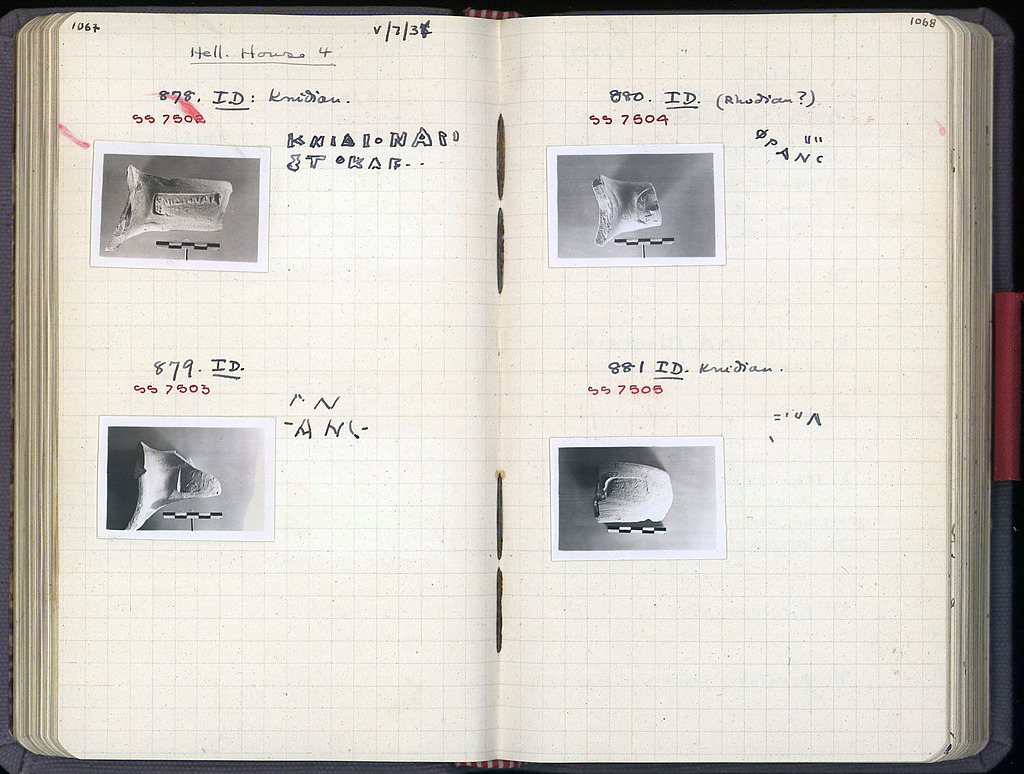 1067
V/7/3
Hell. House 4
878. ID: Knidian.
SS 7502
ΚΝΙΔΙΟΝΑΡΙ
ΣΤΟΚΛΕ..
879. ID.
SS 7503
-ΑΝ(-
1068
880. ID. (Rhodian?)
SS 7504
ΑΝC
881 ID. Knidian.
SS 7505